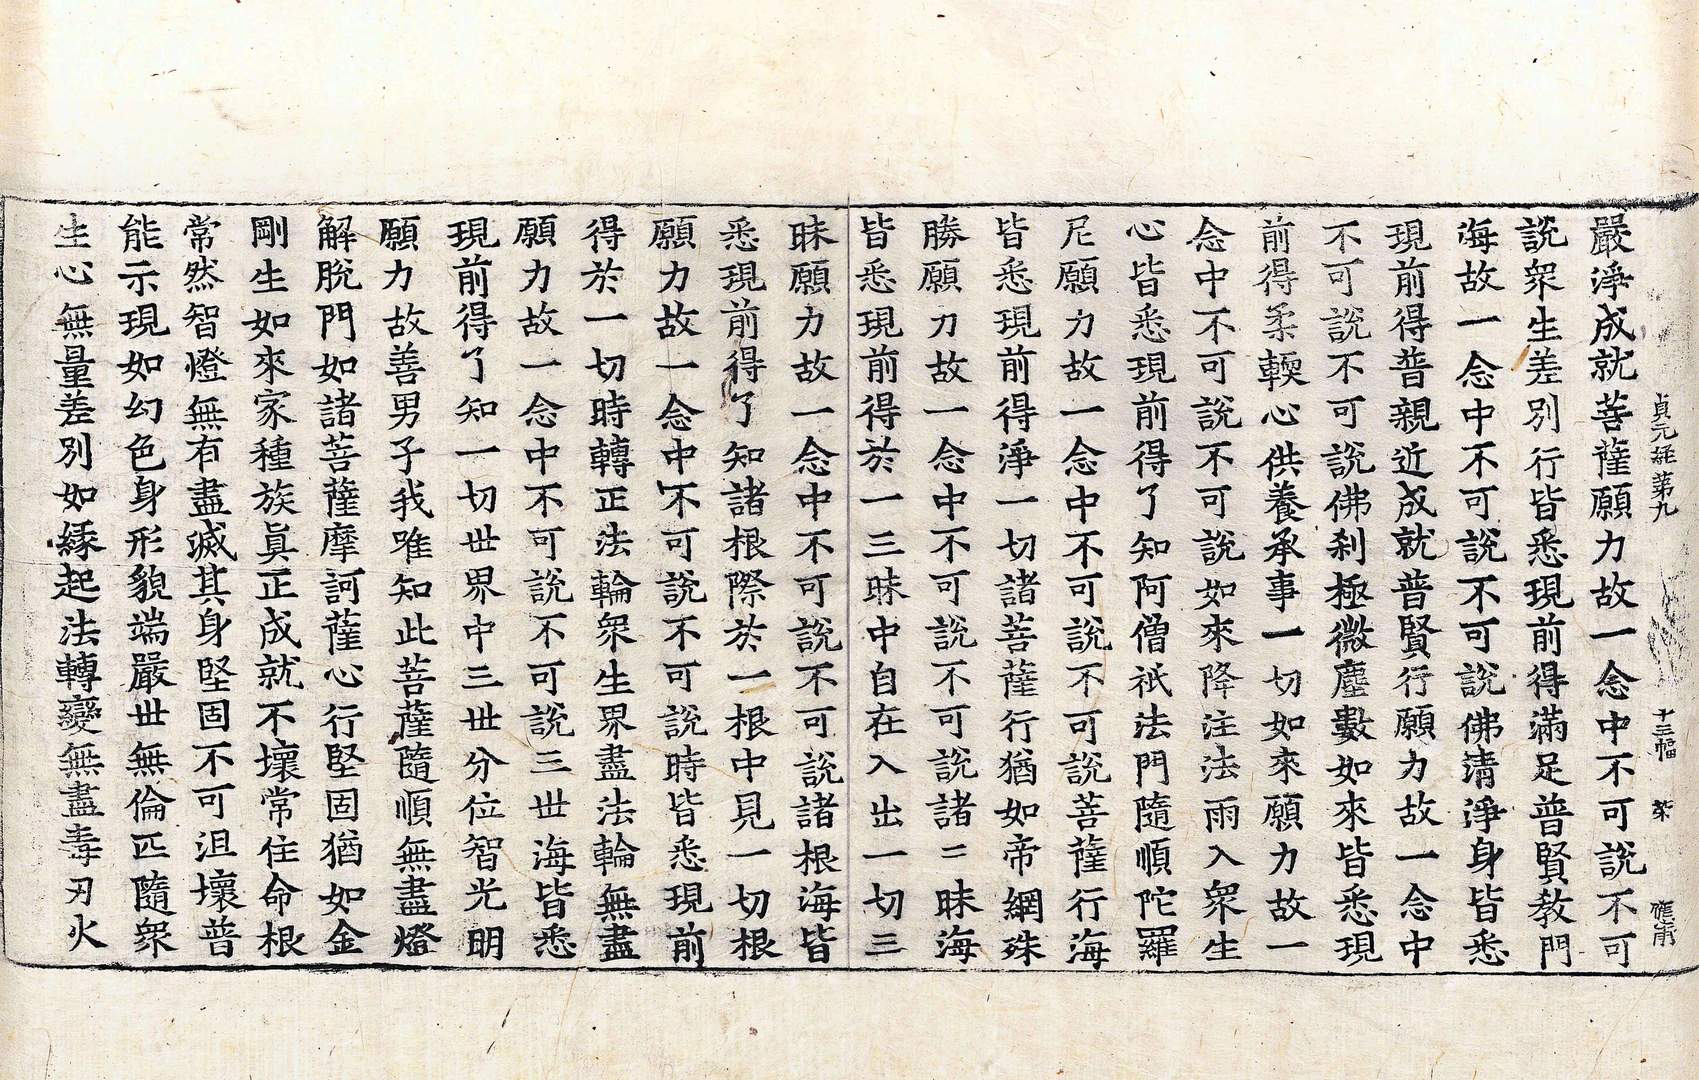 貞元經第九 十三幅
嚴淨成就菩薩願力故一念中不可說不可
說衆生差別行皆悉現前得滿足普賢教門
海故一念中不可說不可說佛清淨身皆悉
現前得普親近成就普賢行願力故一念中
不可說不可說佛刹極微塵數如來皆悉現
前得柔輭心供養承事一切如來願力故一
念中不可說不可說如來降注法雨入衆生
心皆悉現前得了知阿僧祇法門隨順陀羅
尼願力故一念中不可說不可說菩薩行海
皆悉現前得淨一切諸菩薩行猶如帝網殊
勝願力故一念中不可說不可說諸三昧海
皆悉現前得於一三昧中自在入出一切三
昧願力故一念中不可說不可說諸根海皆
悉現前得了知諸根際於一根中見一切根
願力故一念中不可說不可說時皆悉現前
得於一切時轉正法輪衆生界盡法輪無盡
願力故一念中不可說不可說三世海皆悉
現前得了知一切世界中三世分位智光明
願力故善男子我唯知此菩薩隨順無盡燈
解脫門如諸菩薩摩訶薩心行堅固猶如金
剛生如來家種族眞正成就不壞常住命根
常然智燈無有盡滅其身堅固不可沮壞普
能示現如幻色身形貌端嚴世無倫匹隨衆
生心無量差別如縁起法轉變無盡毒刃火